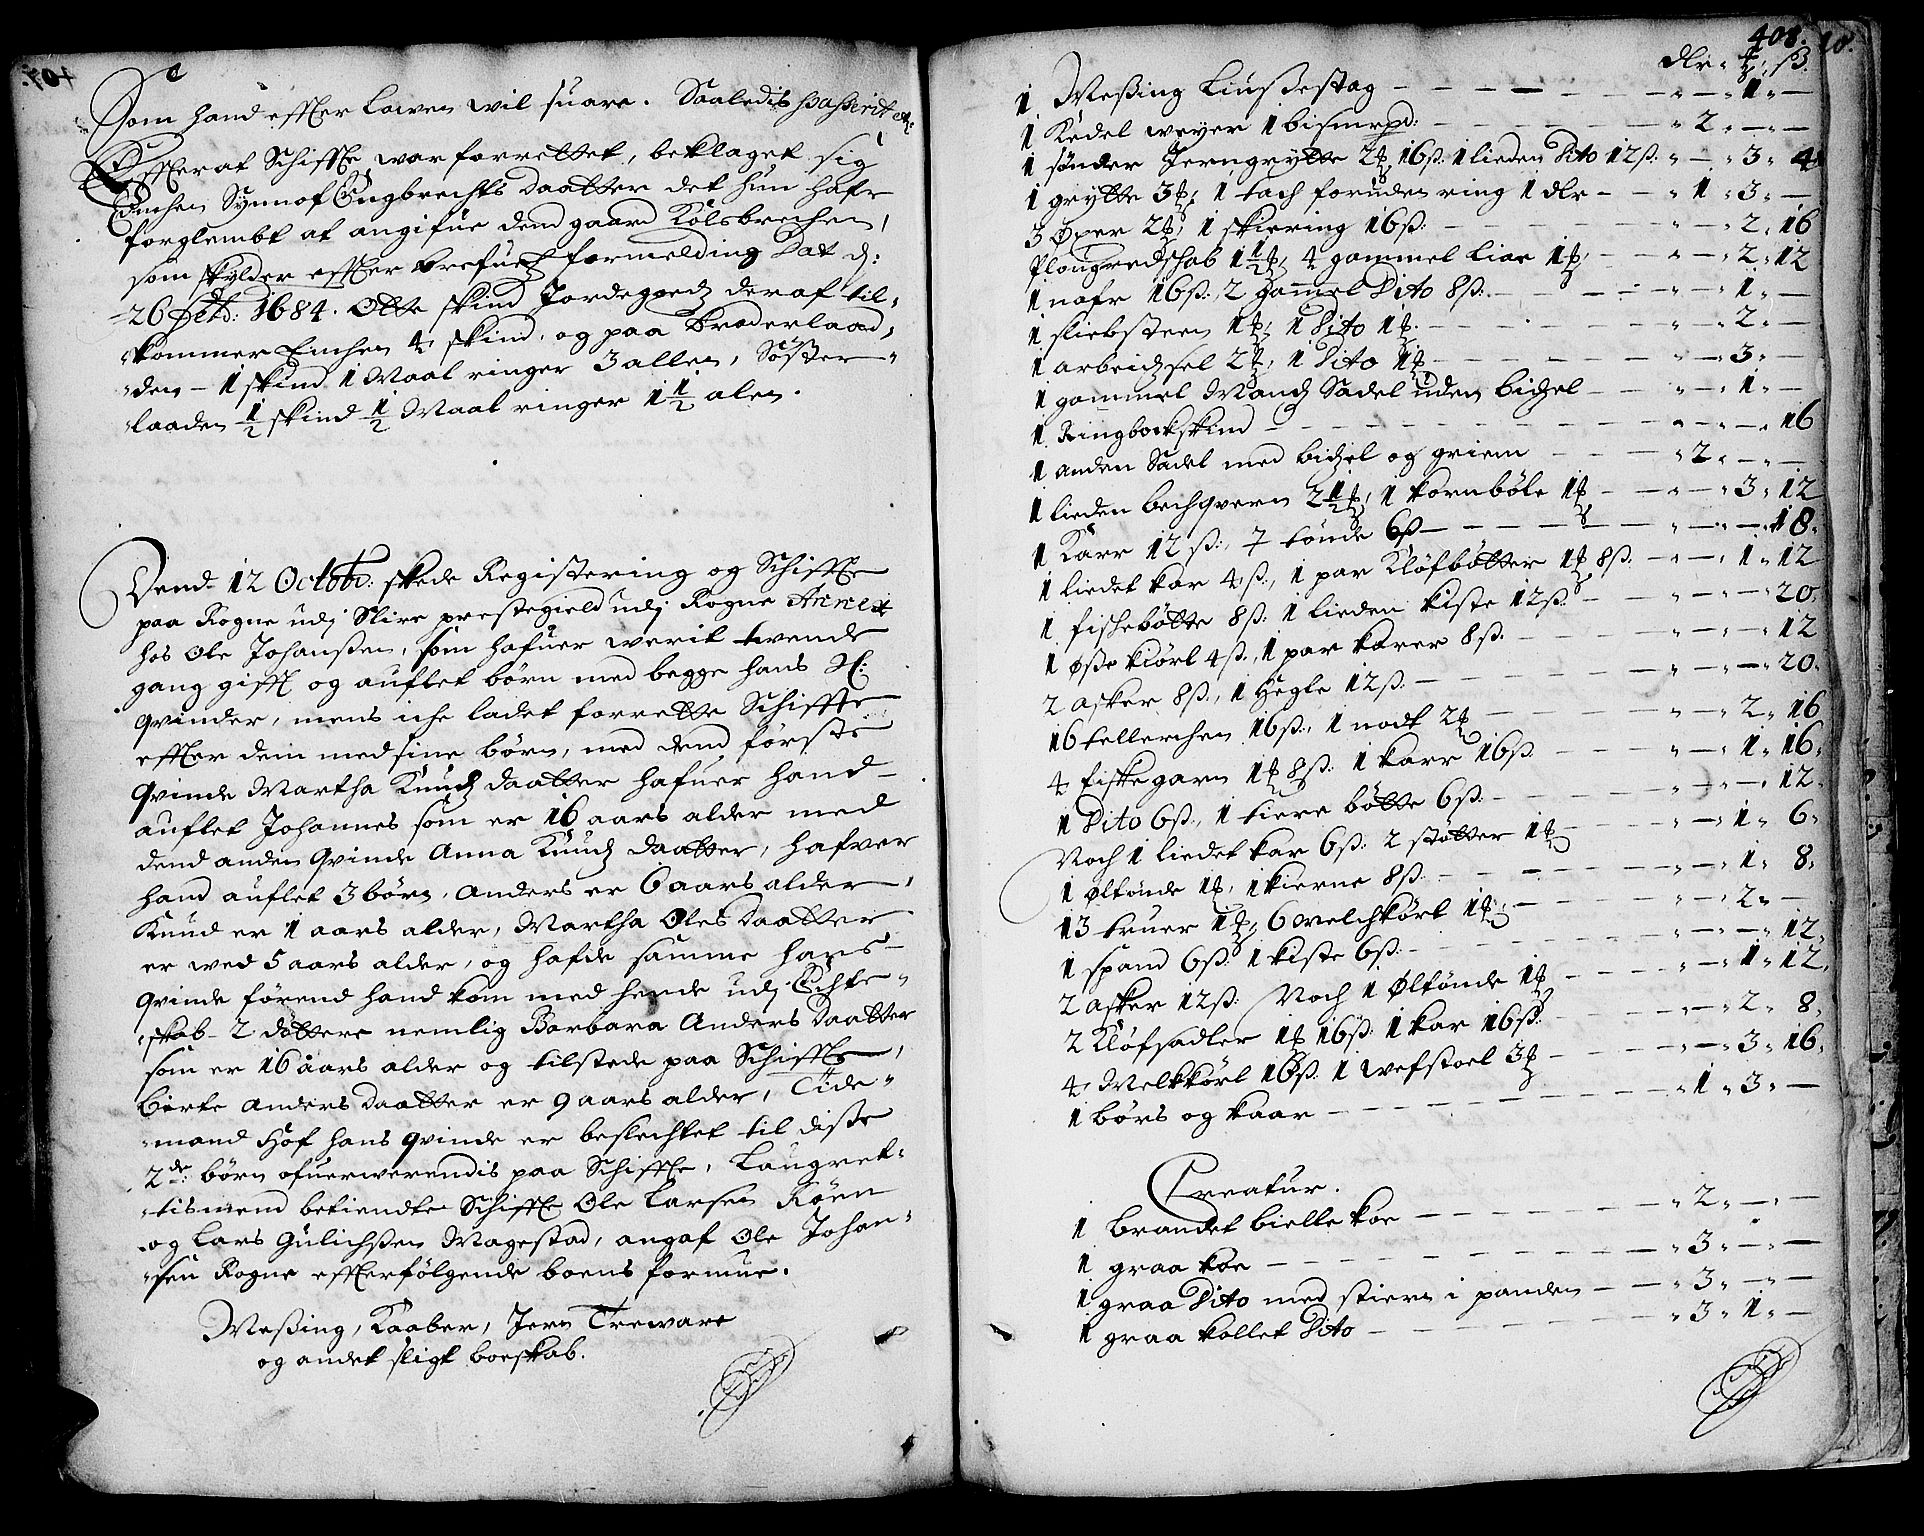 Som hand effter lowen wil suare. Saaledis passerit etc:
Effteraf Schifftet war forrettet, beklaget sig
Enchen Synnof Engbrechts daatter det hun hafr
forglembt at angifue dend gaard Kolsbrechen,
som skylder effter brefuetz formelding Dat d:
26 Octb: 1684. Otte skind Jordegoedz deraf til-
kommer Enchen 4 skind, og paa broderlaad-
den - 1 skind 1 Maal ringer 3 allen, Søster-
laaden ½ skind ½ Maal ringer 1½ alen.
Dend 12 Octobr: skede Registering og Schiffte
paa Rogne udj Slire prestegield udj Rogne Annext
hos Ole Johansen, som hafuer werit twende
gang gifft og auflet børn med begge hans Sl:
qvinder, mens iche ladet forrette Schiffte
effter dem med sine børn, med dend første
qvinde Martha Knudz daatter hafuer hand
auflet Johannes som er 16 aars alder med
dend anden qvinde Anna Knudz daatter, hafver
hand auflet 3 børn, Anders er 6 aars alder,
Knud er 1 aars alder, Martha Oles daatter
er wed 5 aars alder, og hafde samme hans
qvinde førend hand kom med hende udj Echte-
skab 2 døttere nemlig Barbara Anders daatter
som er 16 aars alder og tilstede paa Schifftet,
Birte Anders daatter er 9 aars alder, Tide-
mand Hof hans qvinde er beslechtet til disse
2de: børn ofuerwerendis paa Schifftet, Laugret-
tismend betiendte Schifftet Ole Larsen Røen
og Lars Gulichsen Magestad, angaf Ole Johan-
sen Rogne effterfølgende boens formue.
Messing, Kaaber, Jern Treware
og andet sligt boeskab.
408.
dlr ; ß.
1 Messing Liussestag - - 1 -
1 Kedel weyer 1 bismrpd: - 2 - -
1 sønder Jerngrytte 2 16ß: 1 lieden Dito 12ß: - - 3 4
1 grytte 3; 1 tach foruden ring 1 dlr - 1 3 -
3 Øxer 2; 1 skiering 16ß: - - 2 16
Plougredschab 1½, 4 gammel liae 1, - - 2 12
1 nafr 16ß: 2 gammel Dito 8ß: - - 1 -
1 sliebsteen 1; 1 Dito 1. - - 2 -
1 arbeidzsel 2, 1 Dito 1 - - 3 -
1 gammel Mandz Sadel uden bidzel - - 1 -
1 Ringbockskind - - - 16
1 anden Sadel med bidzel og griem - 2 - -
1 lieden bechqvern 2½, 1 kornbøle 1 - - 3 12
1 Karr 12ß:, 7 tønde 6ß - - - 18
1 liedet kar 4ß:, 1 par Kløfbøtter 1 8ß: - - 1 12
1 fischebøtte 8ß: 1 lieden kiste 12ß: - - - 20
1 øsse kiørl 4ß:, 1 par karer 8ß: - - - 12
2 asker 8ß:, 1 Hegle 12ß: - - - 20
16 tellerchen 16ß:, 1 nodt 2 - - 2 16
4 fiskegarn 1 8ß: 1 karr 16ß: - - 1 16
1 Dito 6ß:, 1 tiere bøtte 6ß: - - - 12
Noch 1 liedet kar 6ß: 2 støtter 1 - - 1 6
1 øltønde 1, 1 kierne 8ß: - - 1 8
13 truer 1; 6 melchkørl 1; - - 2 -
1 spand 6ß: 1 kiste 6ß: - - - 12
2 asker 12ß: Noch 1 Øltønde 1 - - 1 12
2 Kløfsadler 1 16ß: 1 kar 16ß: - - 2 8
4 Melkkørl 16ß: 1 wefstoel 3 - - 3 16
1 børs og kaar - 1 3 -
Creatur.
1 brandet bielle koe - 2 - -
1 graa koe - 3 - -
1 graa Dito med stiern i panden - 3 - -
1 graa kollet Dito - 3 1 -